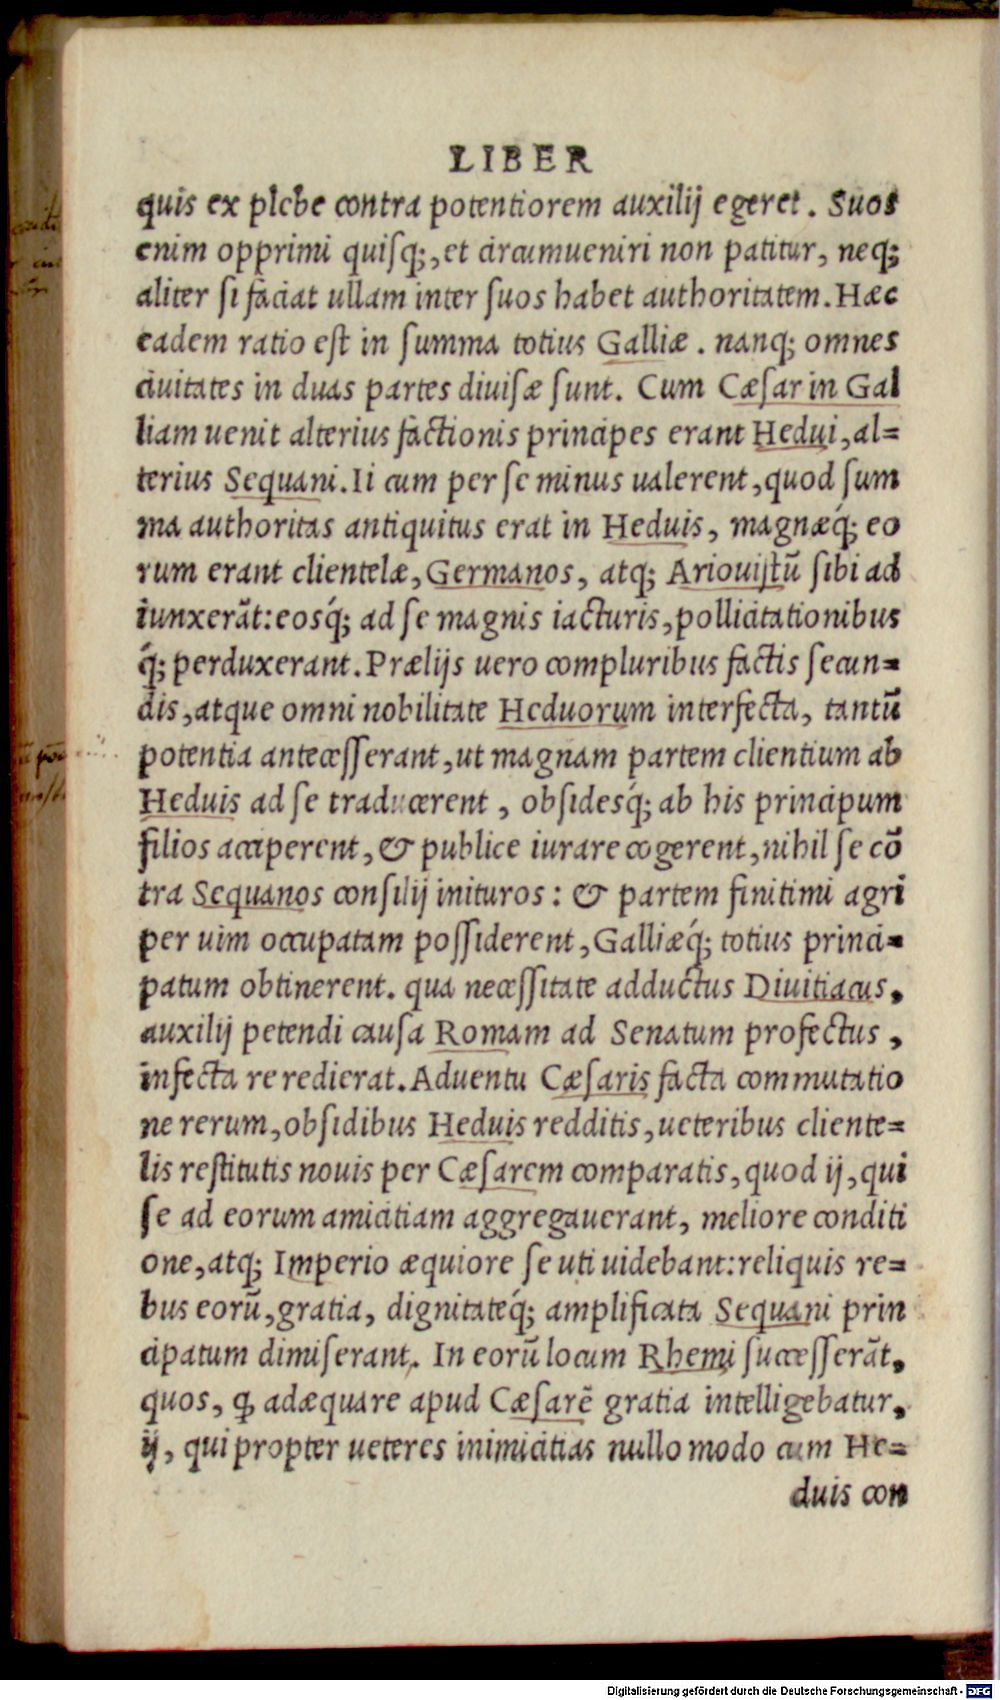 LIBER
quis ex plebe contra potentiorem auxilij egeret. Suos
enim opprimi quiſq;, et circumueniri non patitur, neq;
aliter ſi faciat ullam inter ſuos habet authoritatem. Hæc
eadem ratio eſt in ſumma totius Galliæ. nanq; omnes
ciuitates in duas partes diuiſæ ſunt. Cum Cæſar in Gal
liam uenit alterius factionis principes erant Hedui, al=
terius Sequani. Ii cum per ſe minus ualerent, quod ſum
ma authoritas antiquitus erat in Heduis, magnæq́; eo
rum erant clientelæ, Germanos, atq; Ariouiſtū ſibi ad
iunxerāt: eosq́; ad ſe magnis iacturis, pollicitationibus
q́; perduxerant. Prælijs uero compluribus factis ſecun=
dis, atque omni nobilitate Heduorum interfecta, tantū
potentia anteceſſerant, ut magnam partem clientium ab
Heduis ad ſe traducerent, obſidesq́; ab his principum
filios acciperent, & publice iurare cogerent, nihil ſe cō
tra Sequanos conſilij inituros: & partem finitimi agri
per uim occupatam poſſiderent, Galliæq́; totius princi=
patum obtinerent. qua neceſſitate adductus Diuitiacus,
auxilij petendi cauſa Romam ad Senatum profectus,
infecta re redierat. Aduentu Cæſaris facta commutatio
ne rerum, obſidibus Heduis redditis, ueteribus cliente=
lis reſtitutis nouis per Cæſarem comparatis, quod ij, qui
ſe ad eorum amicitiam aggregauerant, meliore conditi
one, atq; Imperio æquiore ſe uti uidebant: reliquis re=
bus eorū, gratia, dignitateq́; amplificata Sequani prin
cipatum dimiſerant. In eorū locum Rhemi ſucceſſerāt,
quos, ꝙ adæquare apud Cæſarē gratia intelligebatur,
ij, qui propter ueteres inimicitias nullo modo cum He=
duis con
Digitalisierung gefördert durch die Deutsche Forschungsgemeinschaft - DFG